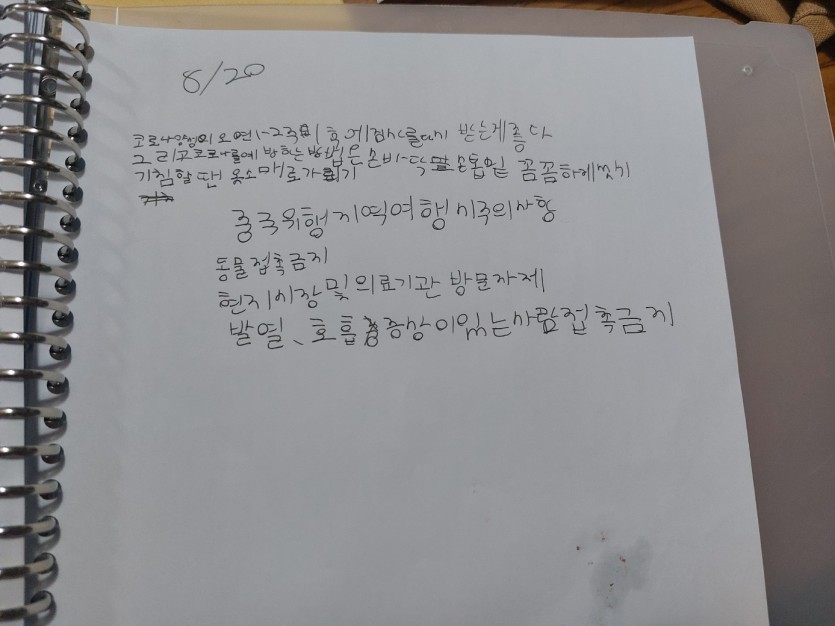 8/20
코로나양성이 오면 1~2주뒤 후에 검사를다시 받는게 좋다
그리고 코로나를 예방하는 방법은 손바닥 손톱밑 꼼꼼하게씻기
기침할땐 옷소매로가리기
중국위행지역여행시주의사항
동물접촉금지
현지시장 및 의료기관 방문자제
발열、호흡증상이있는사람접촉금지